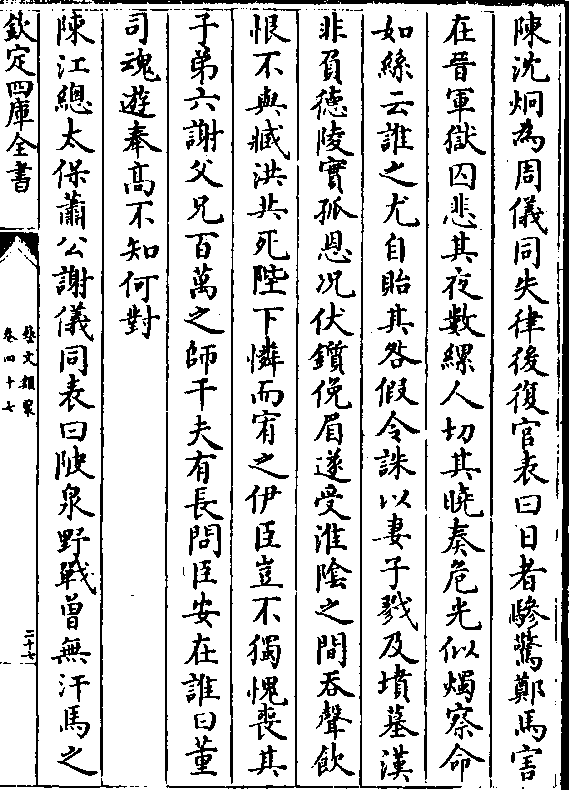 陳沈炯為周儀同失律後復官表曰日者驂驚鄭馬害
在晉軍獄囚悲其夜數縲人切其曉奏危光似燭察命
如絲云誰之尤自貽其咎假令誅以妻子戮及墳墓漢
非負德陵實孤恩况伏鑕俛眉遂受淮陰之間吞聲飲
恨不與臧洪共死陛下憐而宥之伊臣豈不獨愧喪其
子弟六謝父兄百萬之師千夫有長問臣安在誰曰董
司魂遊奉髙不知何對
陳江總太保蕭公謝儀同表曰陂泉野戰曾無汗馬之
欽定四庫全書
藝文類聚
卷四十七
二十七